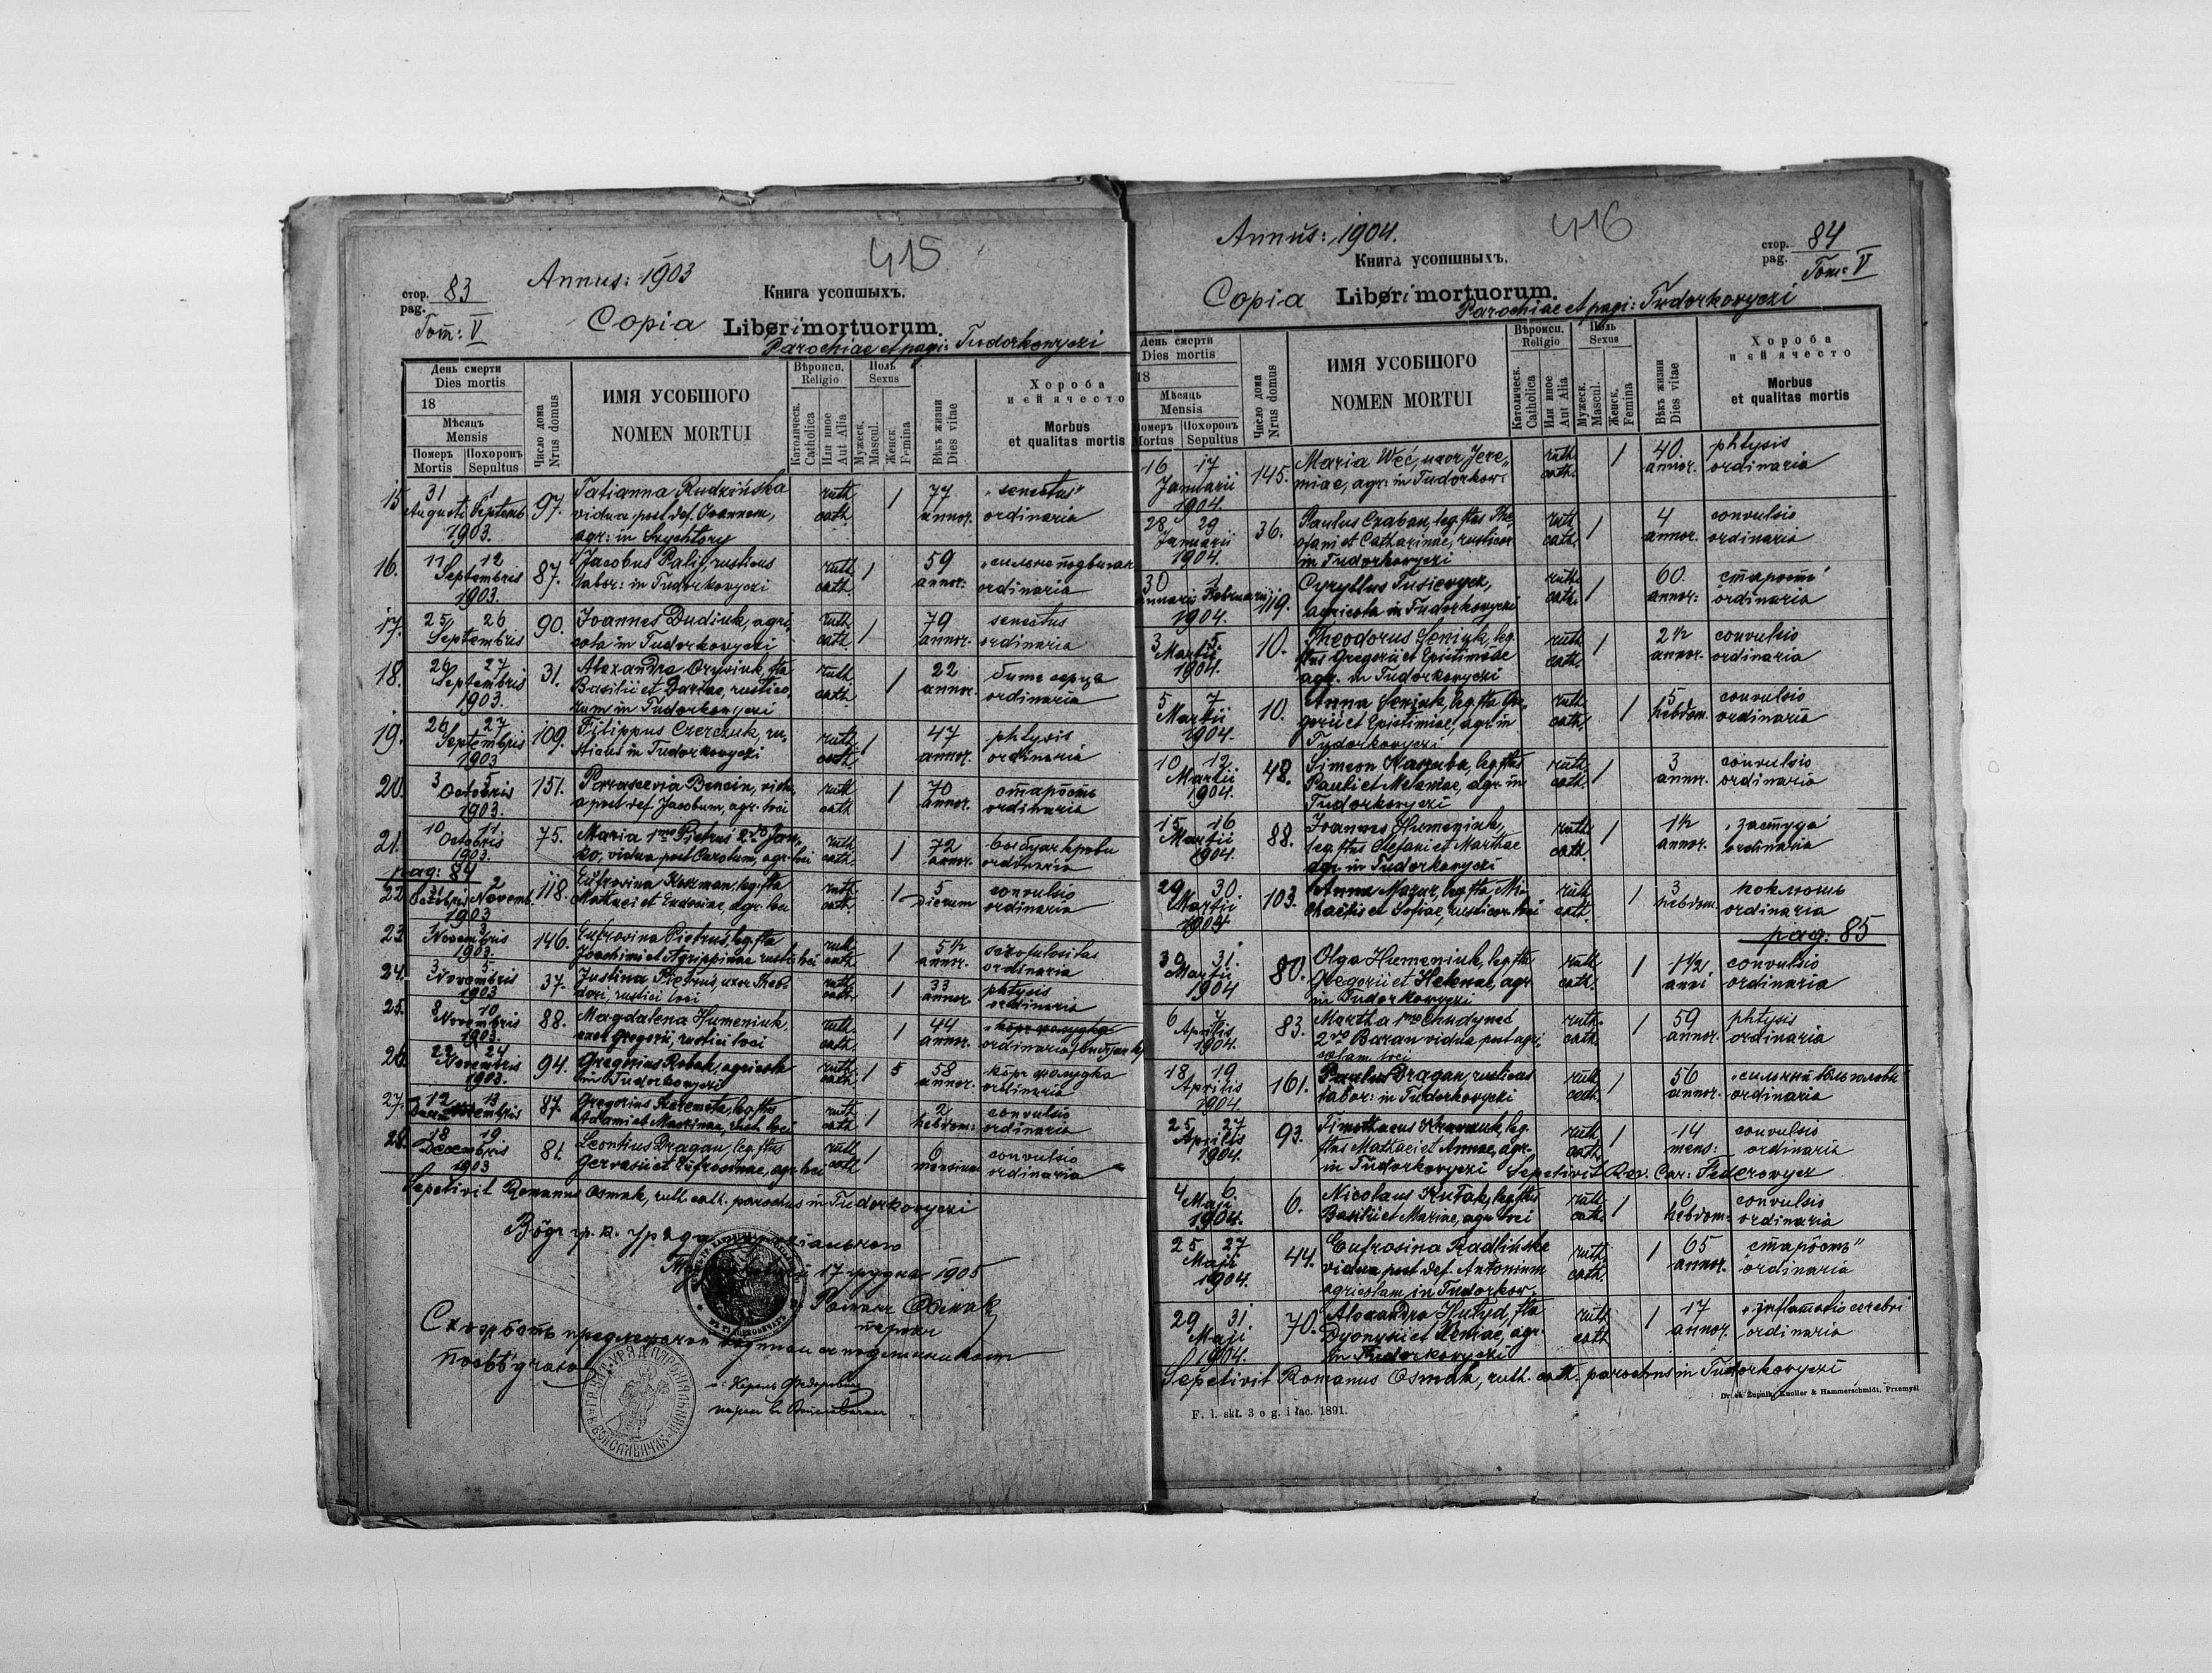 415
стор. 83
pag.
Annus: 1903
Книга усопшыхъ.
Tom: V
Copia Libri mortuorum.
Parochiae et pagi: Tudorkowyczi
День смерти
Dies mortis
18
Мѣсяць
Mensis
Померъ
Mortis
Похоронъ
Sepultus
Число дома
Nrus domus
ИМЯ УСОБШОГО
NOMEN MORTUI
Вѣроисп.
Religio
Католическ.
Catholica
Или иное
Aut Alia
Поль
Sexus
Мужеск.
Mascul.
Женск.
Femina
Вѣкъ жизни
Dies vitae
Хороба
и єй ячесто
Morbus
et qualitas mortis
15 31 1 97. Tatianna Rudzińska ruth. 1 77 „senectus"
Augusti Septemb. vidua post def. Joannem, cath. annor. ordinaria
1903. agr: in
16. 11 12 87. Jacobus Palij, rusticus ruth. 1 59
Septembris labor: in Tudorkowyczi cath. annor: ordinaria
1903.
17. 25 26 90. Joannes Dudiuk, agri- ruth. 1 79 senectus
Septembris cola in Tudorkowyczi cath. annor. ordinaria
18. 26 27 31. Alexandra Oryniuk, fta ruth. 1 22
Septembris Basilii et Dariae, rustico- cath. annor. ordinaria
1903. rum in Tudorkowyczi
19. 26 27 109. Filippus Czerczuk, ru- ruth. 1 47 phtysis
Septembris sticus in Tudorkowyczi cath. annor. ordinaria
1903
20. 3 5 151. Parascevia Bencin, vidu- ruth 1 70 старость
Octobris a post def. Jacobum, agr. loci cath annor. ordinaria
1903.
21. 10 11 75. Maria 1mo Pietrus 2do Jan- ruth 1 72
Octobris ko, vidua post Carolum, agr. loci cath. annor. ordinaria
1903.
pag: 84
22 31 2 118. Eufrosina Kuzman, leg. fta ruth. 1 5 convulsio
Octobris Novemb. Mattaei et Eudociae, agr. loci cath. Dierum ordinaria
1903
23. 146. Eufrosina Pietrus, leg. fta ruth. 1 5½ scrofulositas
Novembris Joachimi et Agrippinae rusti. loci cath annor. ordinaria
1903.
24. 3 5 37. Justina Pietrus, uxor Theo- ruth. 1 33 phtysis
Novembris dori, rustici loci cath. annor. ordinaria
1903
25. 8 10 88. Magdalena Humeniuk, ruth. 1 44
Novembris uxor Gregorii, rustici loci cath. annor. ordinaria
1903.
26. 22 24 94. Gregorius Robak, agricola ruth. 1 5 58
Novembris in Tudorkowyczi cath. annor. ordinaria
1903.
27. 12 13 87. Gregorius Szeremeta, leg. ftus ruth. 1 2 convulsio
Adami et Mariae, rust. loci cath. hebdom: ordinaria
28. 18 19 81. Leontius Dragan, leg. ftus ruth 1 6 convulsio
Decembris Gervasii et Eufrosinae, agr. loci cath mensium ordinaria
1903
Sepelivit Romanus Osmak, ruth. cath. parochus in Tudorkowyczi
17 грудня 1905
Романъ Осмакъ
парохъ
416
Annus: 1904.
стор. 84
pag.
Книга усопшныхъ.
Tom: V
Copia Libri mortuorum.
Parochiae et pagi: Tudorkowyczi
День смерти
Dies mortis
18
Мѣсяць
Mensis
Померъ
Mortus
Похоронъ
Sepultus
Число дома
Nrus domus
ИМЯ УСОБШОГО
NOMEN MORTUI
Вѣроисп.
Religio
Католическ.
Catholica
Или иное
Aut Alia
Поль
Sexus
Мужеск.
Mascul.
Женск.
Femina
Вѣкъ жизни
Dies vitae
Хороба
и єй ячесто
Morbus
et qualitas mortis
16 17 145. Maria Weć, uxor Jere- ruth. 1 40. phtysis
Januarii miae, agr: in Tudorkow: cath. annor. ordinaria
1904.
28 29 36. Paulus Czaban, leg. ftus The- ruth. 1 4 convulsio
Januarii ofani et Catharinae, rusticor. cath. annor. ordinaria
1904. in Tudorkowyczi
30 1 119. Cyryllus Tusiewycz, ruth. 1 60. старость
Januarii Februarii agricola in Tudorkowyczi cath. annor: ordinaria
1904.
3 5. 10. Theodorus Seniuk, leg. ruth 1 2½ convulsio
Martii ftus Gregorii et Epistimiae cath. annor. ordinaria
1904. agr. in Tudorkowyczi
5 7 10. Anna Seniuk, leg. fta Gre- ruth. 1 5 convulsio
Martii gorii et Epistimiae, agr. in cath. hebdom. ordinaria
1904. Tudorkowyczi
10 12. 48. Simeon Kaszuba, leg. ftus ruth. 1 3 convulsio
Martii Pauli et Melaniae, agr. in cath. annor. ordinaria
1904. Tudorkowyczi
15 16 88. Joannes Humeniuk, ruth. 1 1½ „застуда"
Martii leg. ftus Stefani et Marthae cath. annor. ordinaria
1904. agr. in Tudorkowyczi
29 30. 103. Anna Mazur, leg. fta Mi- ruth 1 3 коклюшь
Martii chaelis et Sofiae, rusticor. loci cath. hebdom. ordinaria
1904
pag: 85
30 31. 80. Olga Humeniuk, leg. fta ruth 1 1½ convulsio
Martii Gregorii et Helenae, agr. cath. anni. ordinaria
1904 in Tudorkowyczi
6 7 83. Martha 1mo Chudyneć ruth. 1 59 phtysis
Aprilis 2do Baran vidua post agri- cath. annor. ordinaria
1904. colam loci
18 19 161. Paulus Dragan, rusticus ruth. 1 56
Aprilis labor: in Tudorkowyczi cath. annor. ordinaria
1904.
25 27 93. Timothaeus Krawczuk, leg. ruth. 1 14 convulsio
Aprilis ftus Mathaei et Annae, agr. cath. mens: ordinaria
1904. in Tudorkowyczi Sepelivit Rev. Car: Federowycz
4 6. 6. Nicolaus Kułak, leg. ftus ruth. 1 6 convulsio
Maji Basilii et Mariae, agr. loci cath. hebdom: ordinaria
1904.
25 27 44. Eufrosina Radlińska ruth. 1 65 старость"
Maji vidua post def. Antonium cath. annor. ordinaria
1904. agricolam in Tudorkow.
29 31. 70. Alexandra Hułyd, fta ruth. 1 17 „inflamatio cerebri
Maji Dyonysii et Xeniae, agr. cath annor. ordinaria
1904. in Tudorkowyczi
Sepelivit Romanus Osmak, ruth. cath. parochus in Tudorkowyczi
Druk. Żupnik, Knoller & Hammerschmidt, Przemyśl
F. 1. skł. 3 o g. i łac. 1891.